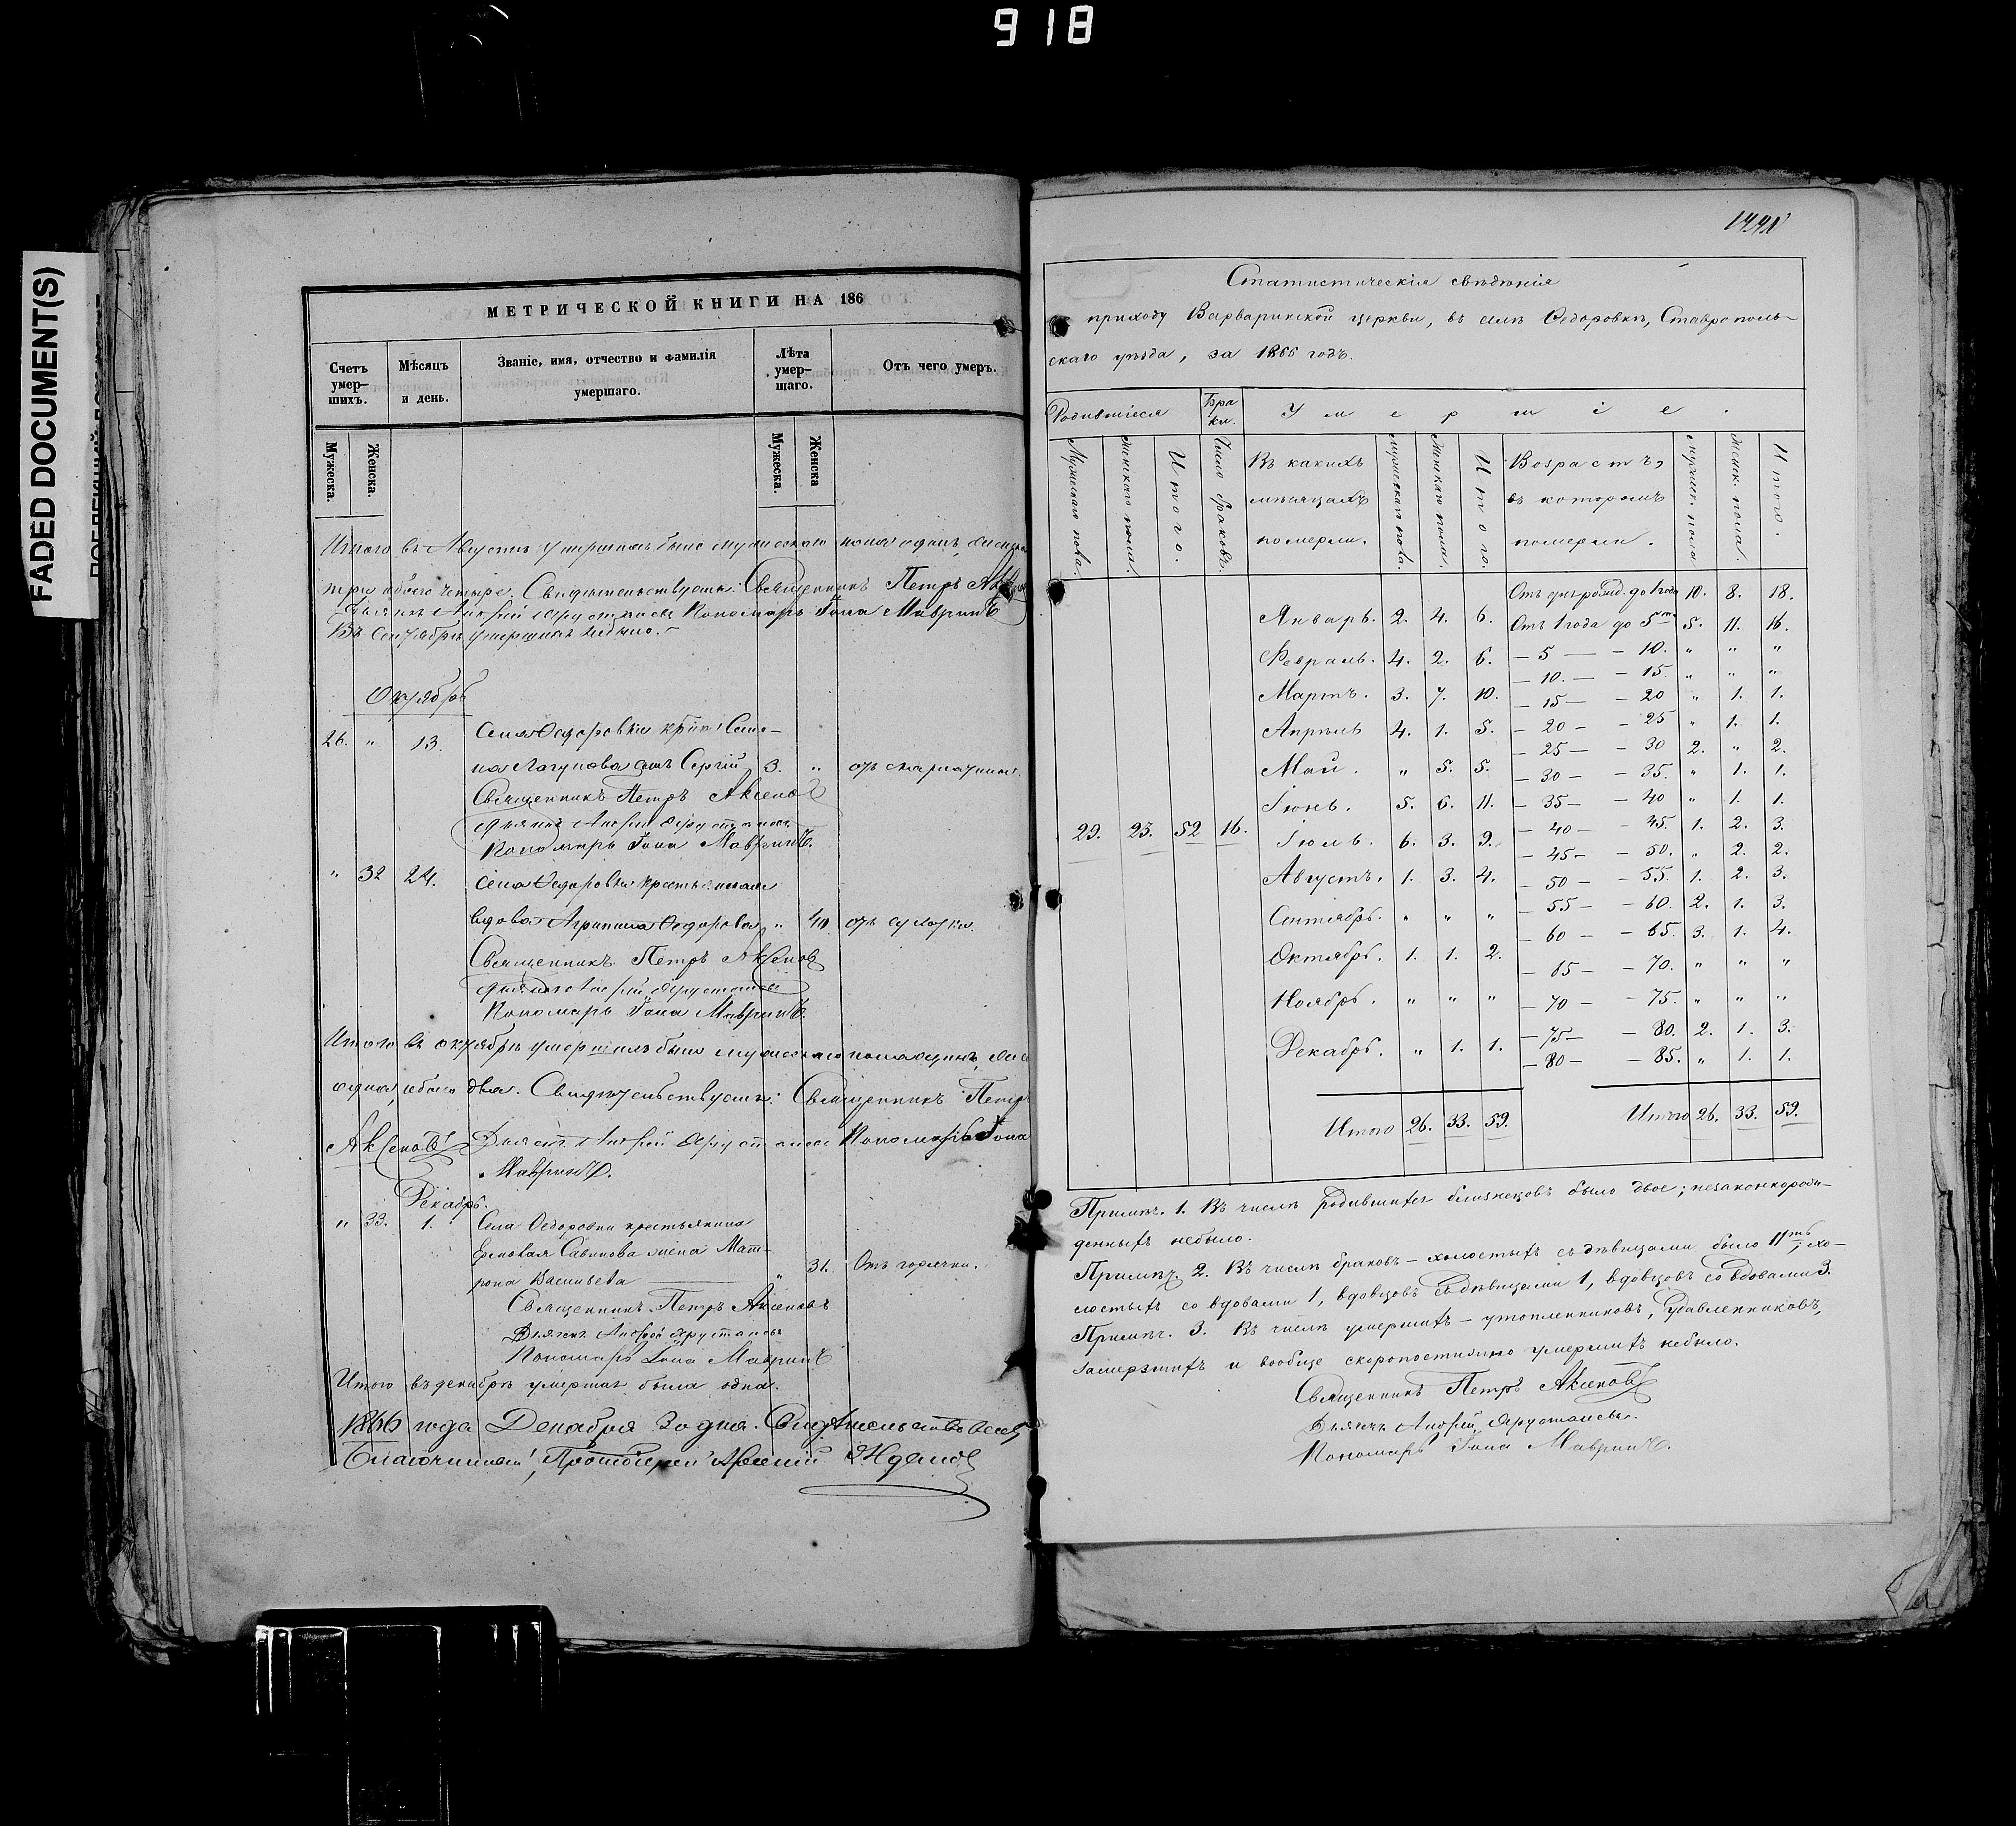 918
FADED DOCUMENT(S)
МЕТРИЧЕСКОЙ КНИГИ НА 186
Счетъ умер-шихъ.
Мѣсяцъ и день.
Званіе, имя, отчество и фамилія умершаго.
Лѣта умер-шаго.
Отъ чего умеръ.
Мужеска. Женска. Мужеска. Женска
Итого въ Августѣ умершихъ было мужескаго пола одинъ,
три обоего четыре. Свидѣтельствуемъ: Священникъ Петръ
Дьячекъ Андрей Хрусталевъ Пономарь Іона Мавринъ
Въ Сентябрѣ умершихъ небыло.
Октябрь
26. " 13. Села Ѳедоровки Семе-
на Лагунова сынъ Сергій 3. "
Священникъ Петръ Аксеновъ
Дьячекъ Андрей Хрусталевъ
Пономарь Іона Мавринъ.
" 32 24. Села Ѳедоровки крестьянская
вдова Агрипина Ѳедорова " 40
Священникъ Петръ Аксеновъ
Дьячекъ Андрей Хрусталевъ
Пономарь Іона Мавринъ.
Итого въ октябрѣ умершихъ было мужескаго пола одинъ,
одна, обоего два. Свидѣтельствуемъ: Священникъ Петръ
Аксеновъ Дьячекъ Андрей Хрусталевъ Пономарь Іона
Мавринъ.
Декабрь.
" 33. 1. Села Ѳедоровки крестьянина
Савинова жена Мат-
рона Васильева " 31. Отъ горячки.
Священникъ Петръ Аксеновъ
Дьячекъ Андрей Хрусталевъ
Пономарь Іона Мавринъ
Итого въ декабрѣ умершая была одна.
1866 года Декабря 30 дня. Свидѣтельствовалъ
Благочинный, Протоіерей
Статистическія свѣдѣнія
приходу Варваринской церкви, въ селѣ Ѳедоровкѣ, Ставрополь-
скаго уѣзда, за 1866 годъ.
Родившіеся
Бра ки.
Умершіе.
Мужескаго пола. Женскаго пола. Итого. Число браковъ.
Въ какихъ мѣсяцахъ померли.
мужескаго пола. Женскаго пола. Итого.
Возрастъ, въ которомъ померли.
мужеск. пола Женск. пола. Итого.
29. 23. 52 16.
Январь. 2. 4. 6.
Февраль. 4. 2. 6.
Мартъ. 3. 7. 10.
Апрѣль 4. 1. 5.
Май. " 5. 5.
Іюнь. 5. 6. 11.
Іюль. 6. 3. 9.
Августъ. 1. 3. 4.
Сентябрь. " " "
Октябрь. 1. 1. 2.
Ноябрь. " " "
Декабрь. " 1. 1.
Итого 26. 33. 59.
Отъ дня рожд. до 1 года 10. 8. 18.
Отъ 1 года до 5ти 5. 11. 16.
– 5 – – 10. " " "
– 10. – – 15. " " "
– 15 – – 20 " 1. 1.
– 20 – – 25 " 1. 1.
– 25 – – 30 2. " 2.
– 30 – – 35. " 1. 1.
– 35 – – 40 " 1. 1.
– 40 – – 45. 1. 2. 3.
– 45 – – 50. " 2. 2.
– 50 – – 55. 1. 2. 3.
– 55 – – 60. 2. 1. 3.
– 60 – – 65. 3. 1. 4.
– 65 – – 70. " " "
– 70 – – 75. " " "
– 75 – – 80. 2. 1. 3.
– 80 – – 85. " 1. 1.
Итого 26. 33. 59.
Примѣч. 1. Въ числѣ родившихся близнецовъ было двое; незаконнорож-
денныхъ небыло.
Примѣч. 2. Въ числѣ браковъ – холостыхъ съ дѣвицами было 11ть, хо-
лостыхъ со вдовами 1, вдовцовъ съ дѣвицами 1, вдовцовъ со вдовами 3.
Примѣч. 3. Въ числѣ умершихъ – утопленниковъ, удавленниковъ,
замерзшихъ и вообще скоропостижно умершихъ небыло.
Священникъ Петръ Аксеновъ
Дьячекъ Андрей Хрусталевъ.
Пономарь Іона Мавринъ.